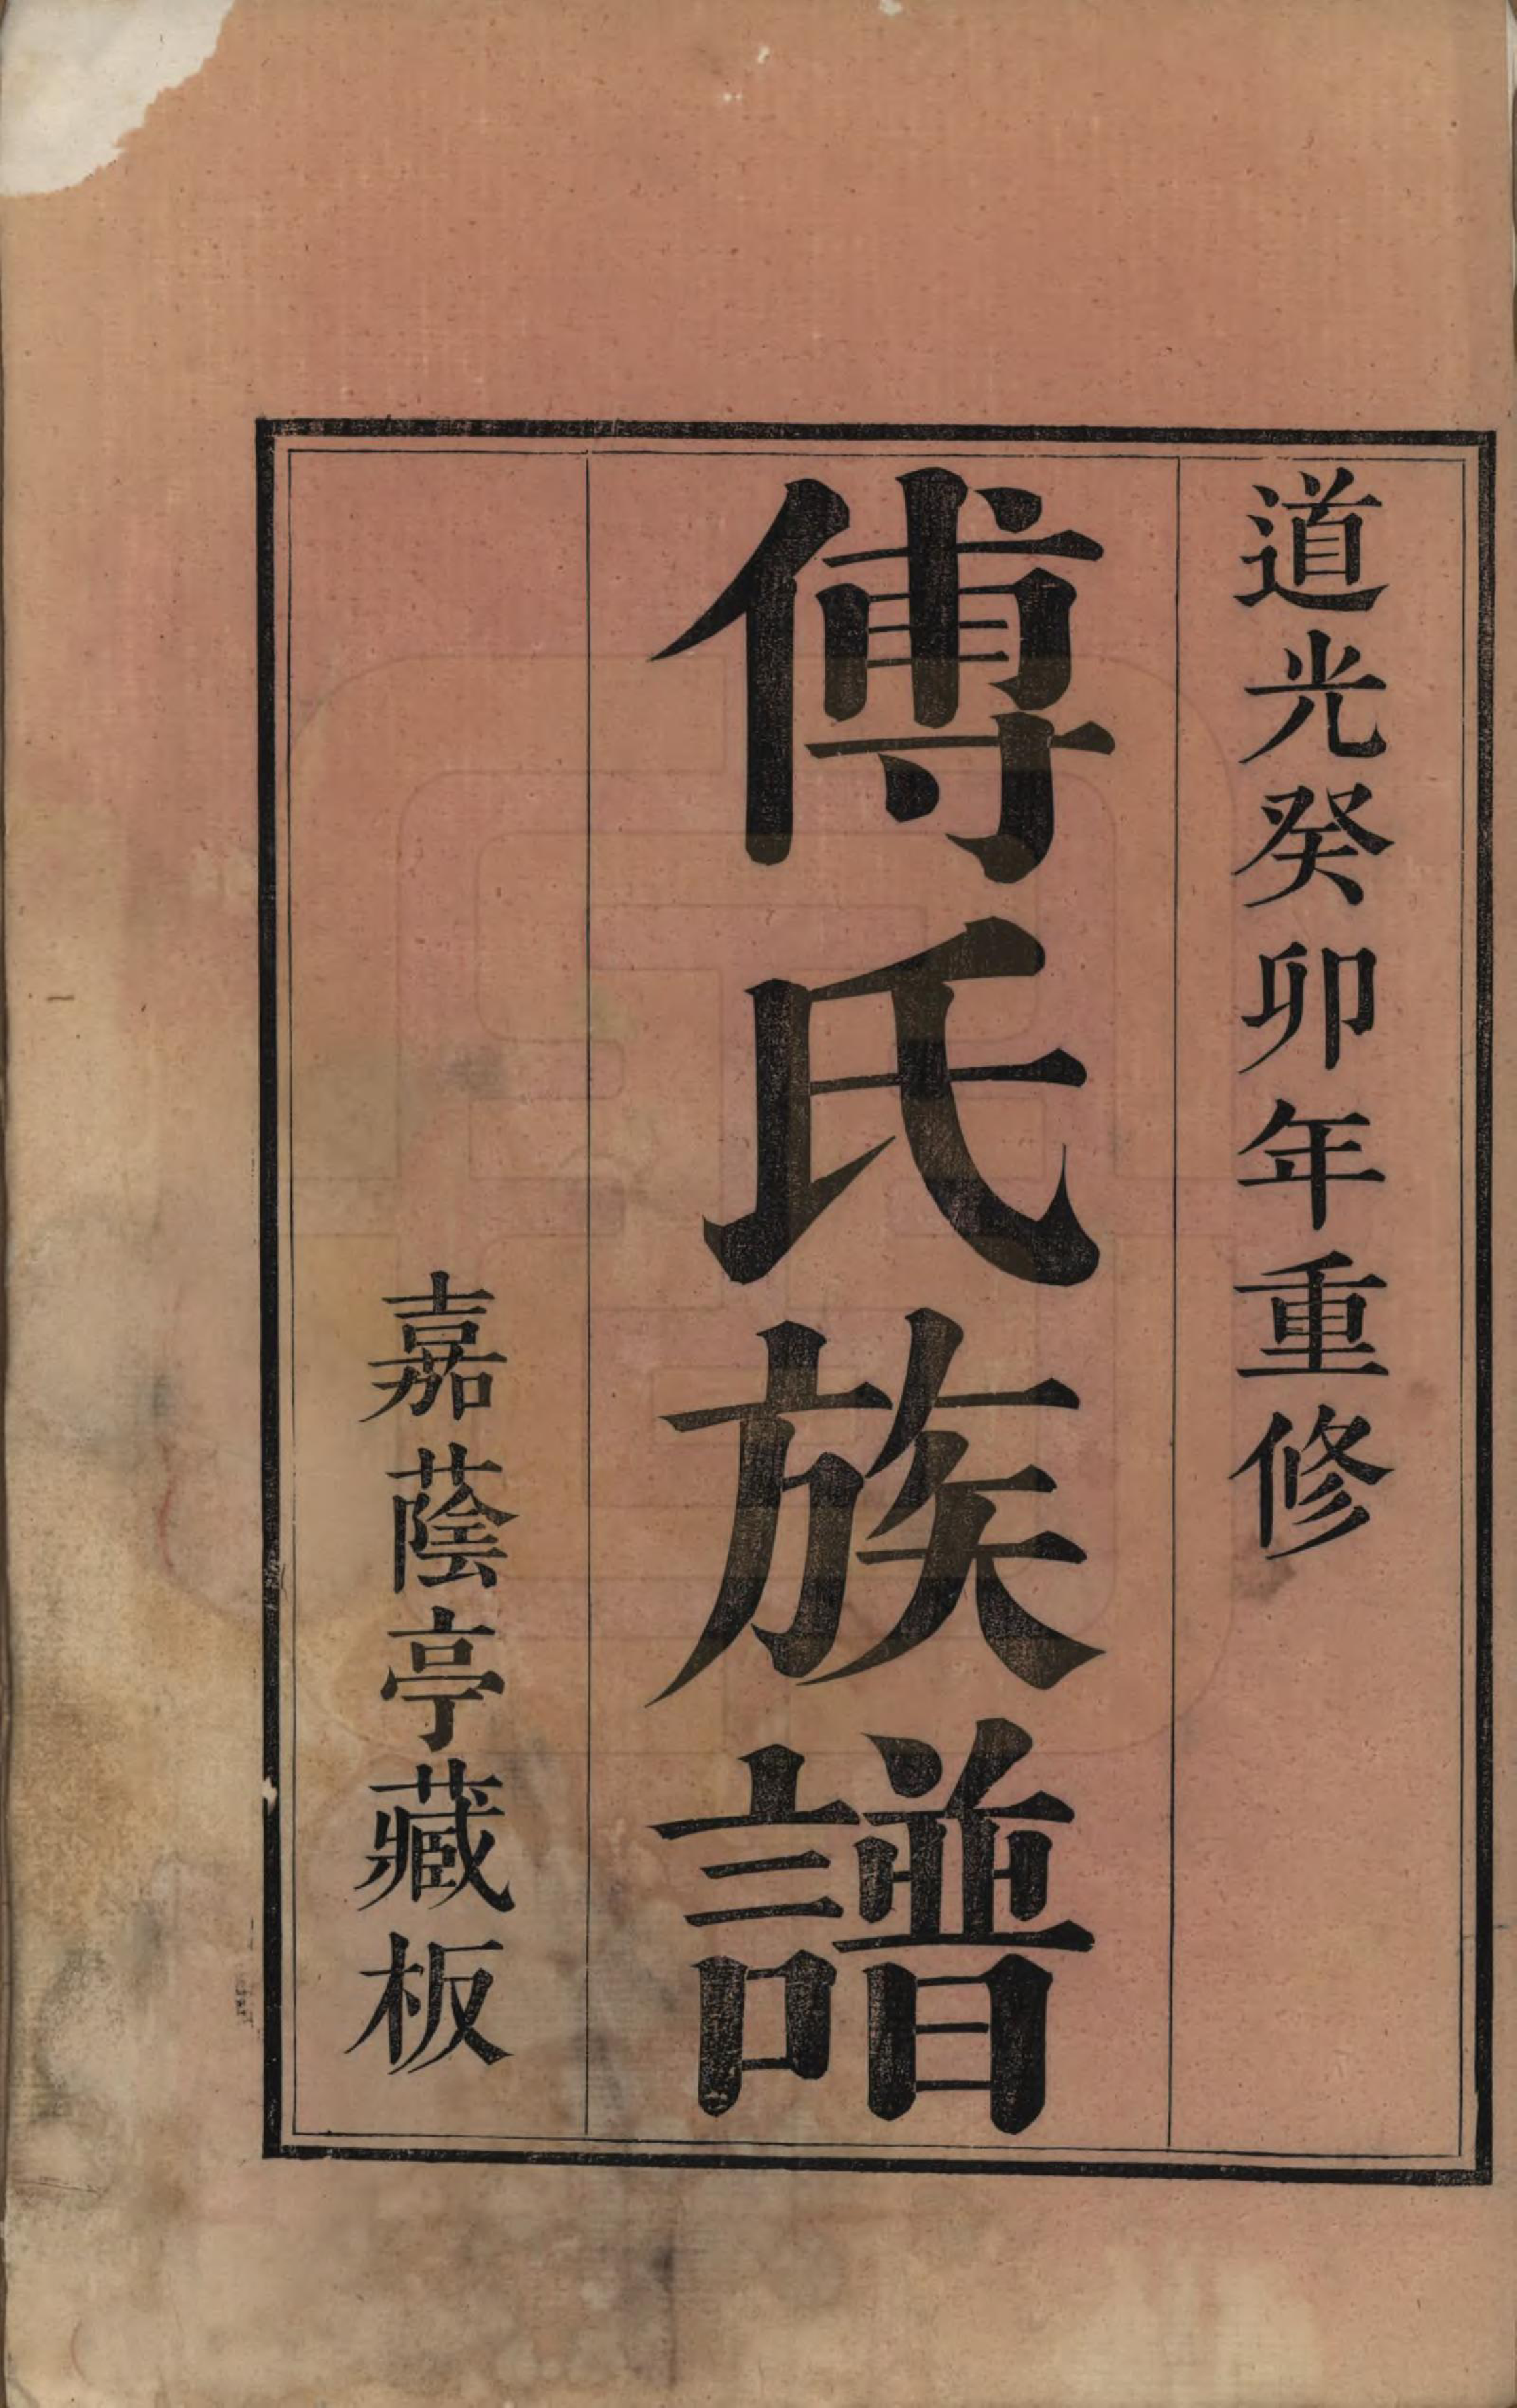 道光癸卯年重修
傅氏族譜
嘉蔭亭藏板